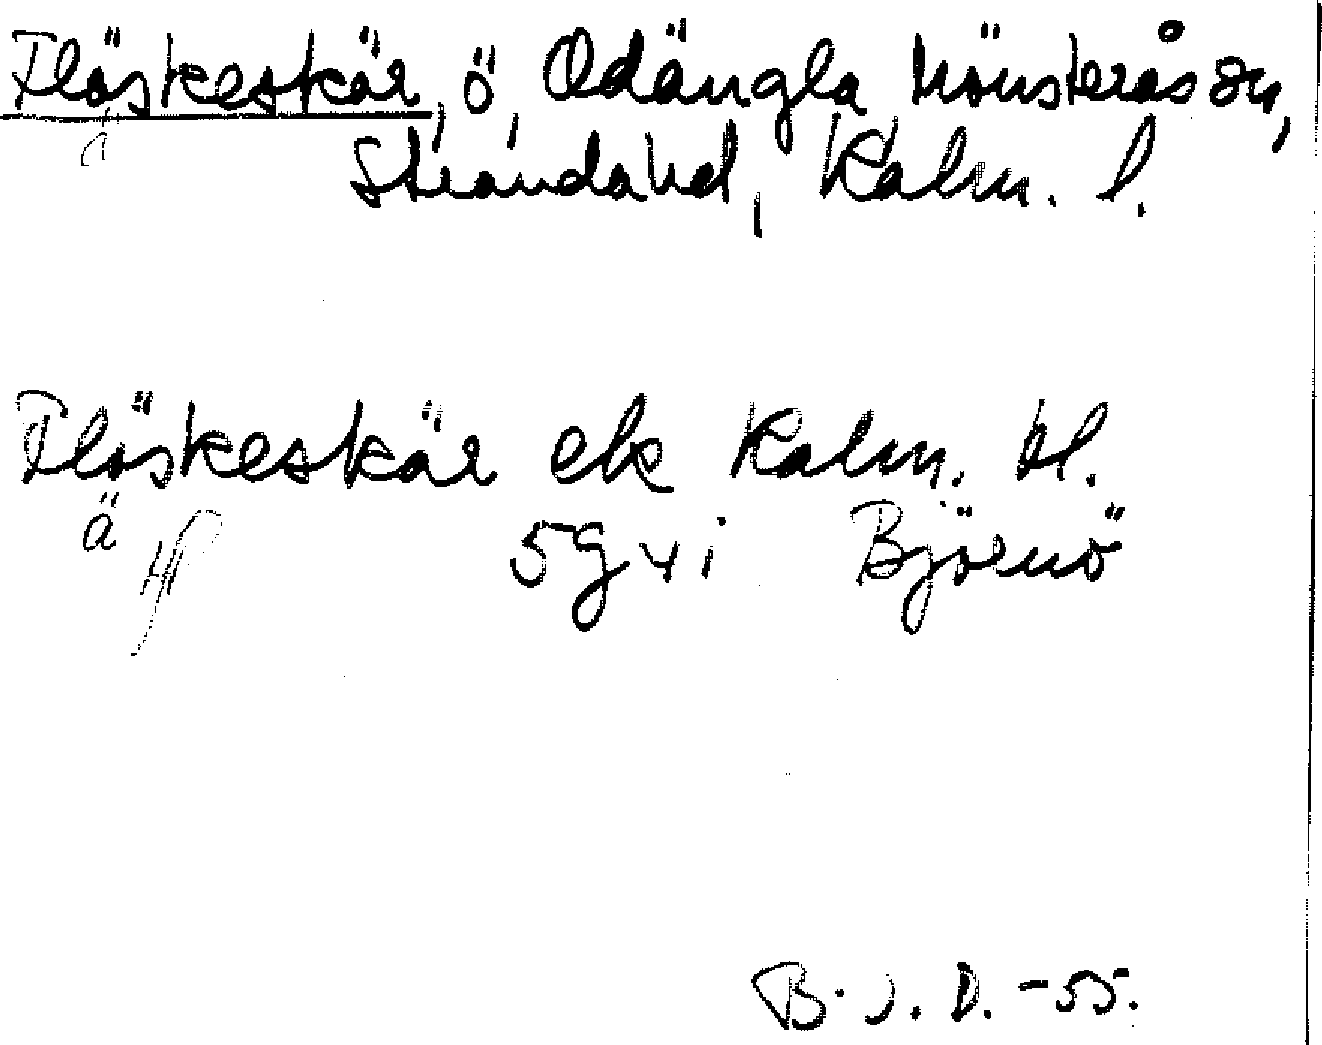 Flöskeskär, ö, Ödängla Mönsterås sn,
Stranda hd, Kalm. l.
Flöskeskär ek Kalm. bl.
ä
5g4i Björnö
B. J. D. -55.